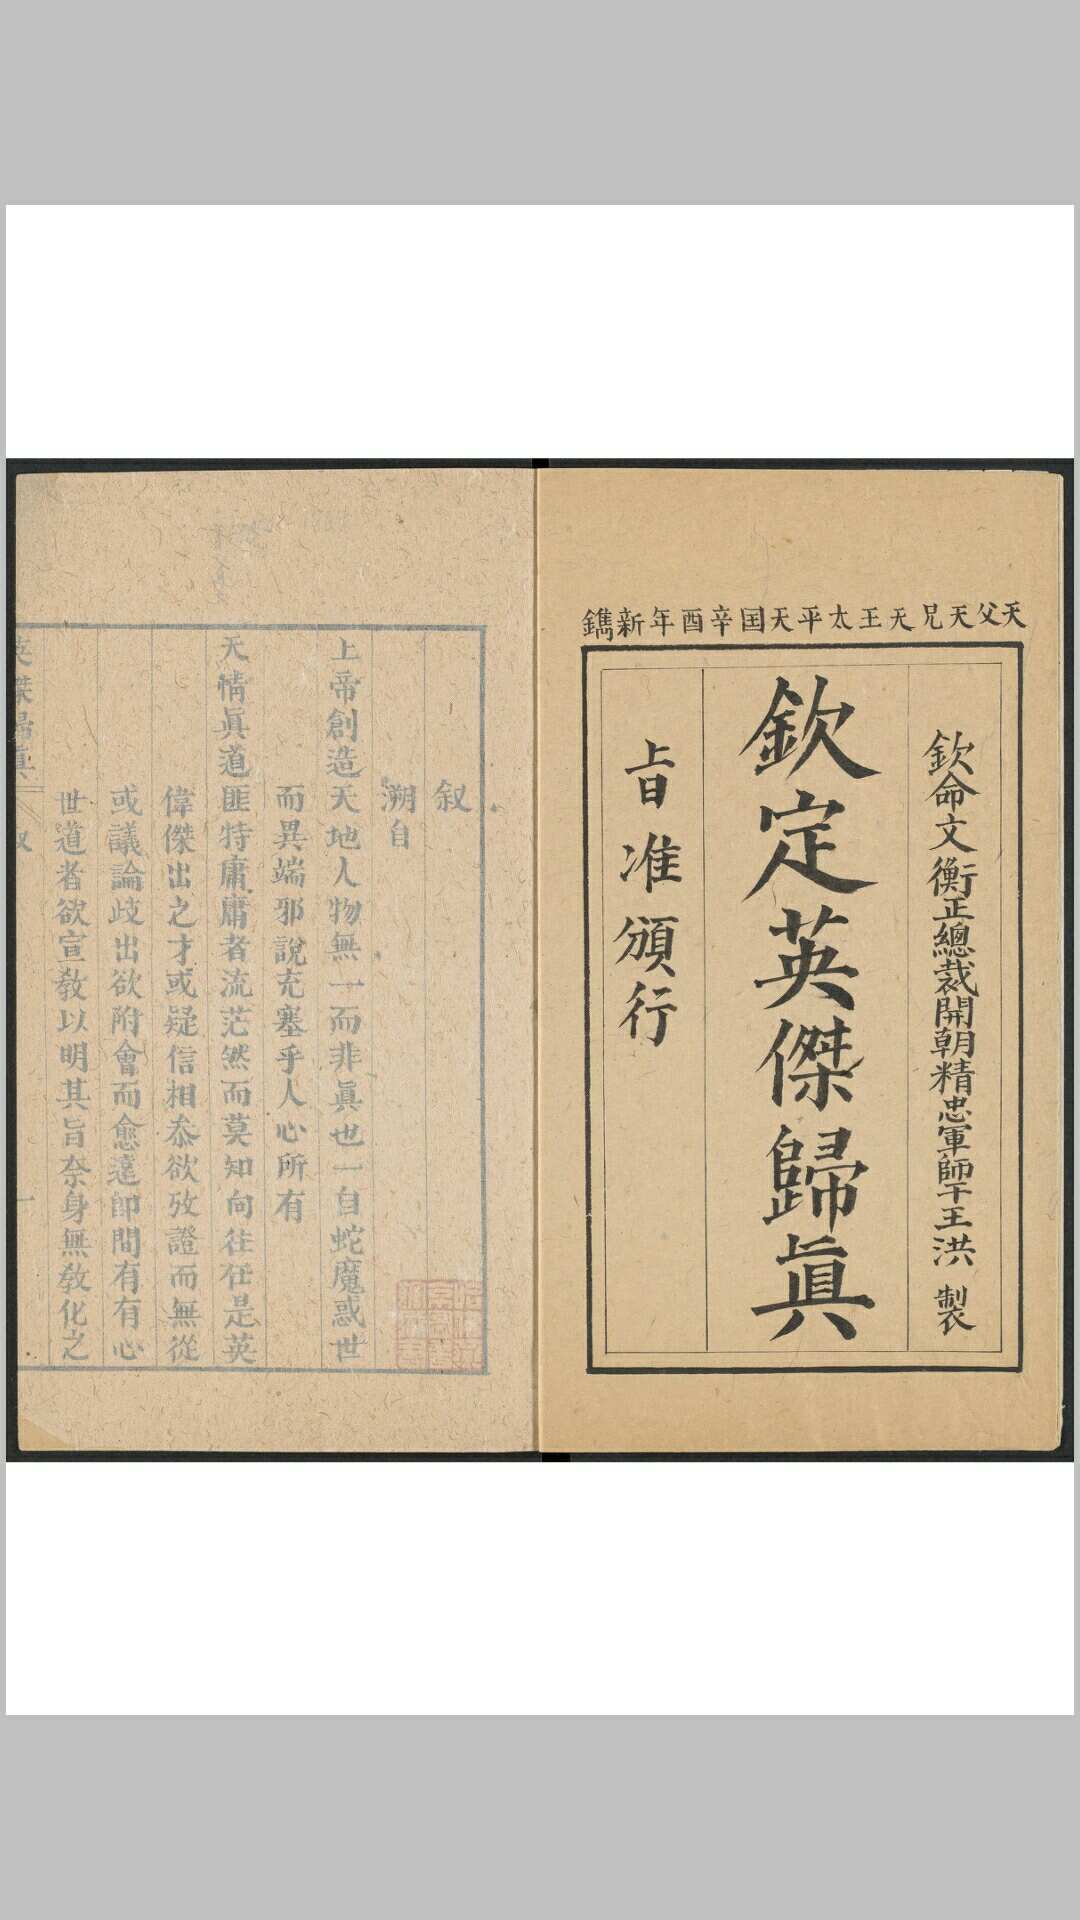 天父天兄天王太平天囯辛酉年新鐫
欽命文衡正總裁開朝精忠軍師干王洪 製
欽定英傑歸眞
旨准頒行
叙
溯自
上帝創造天地人物無一而非眞也一自蛇魔惑世
而異端邪說充塞乎人心所有
天情眞道匪特庸庸者流茫然而莫知向往任是英
偉傑出之才或疑信相叅欲攷證而無從
或議論歧出欲附會而愈遠卽間有有心
世道者欲宣敎以明其旨奈身無敎化之
英傑歸眞 叙 一